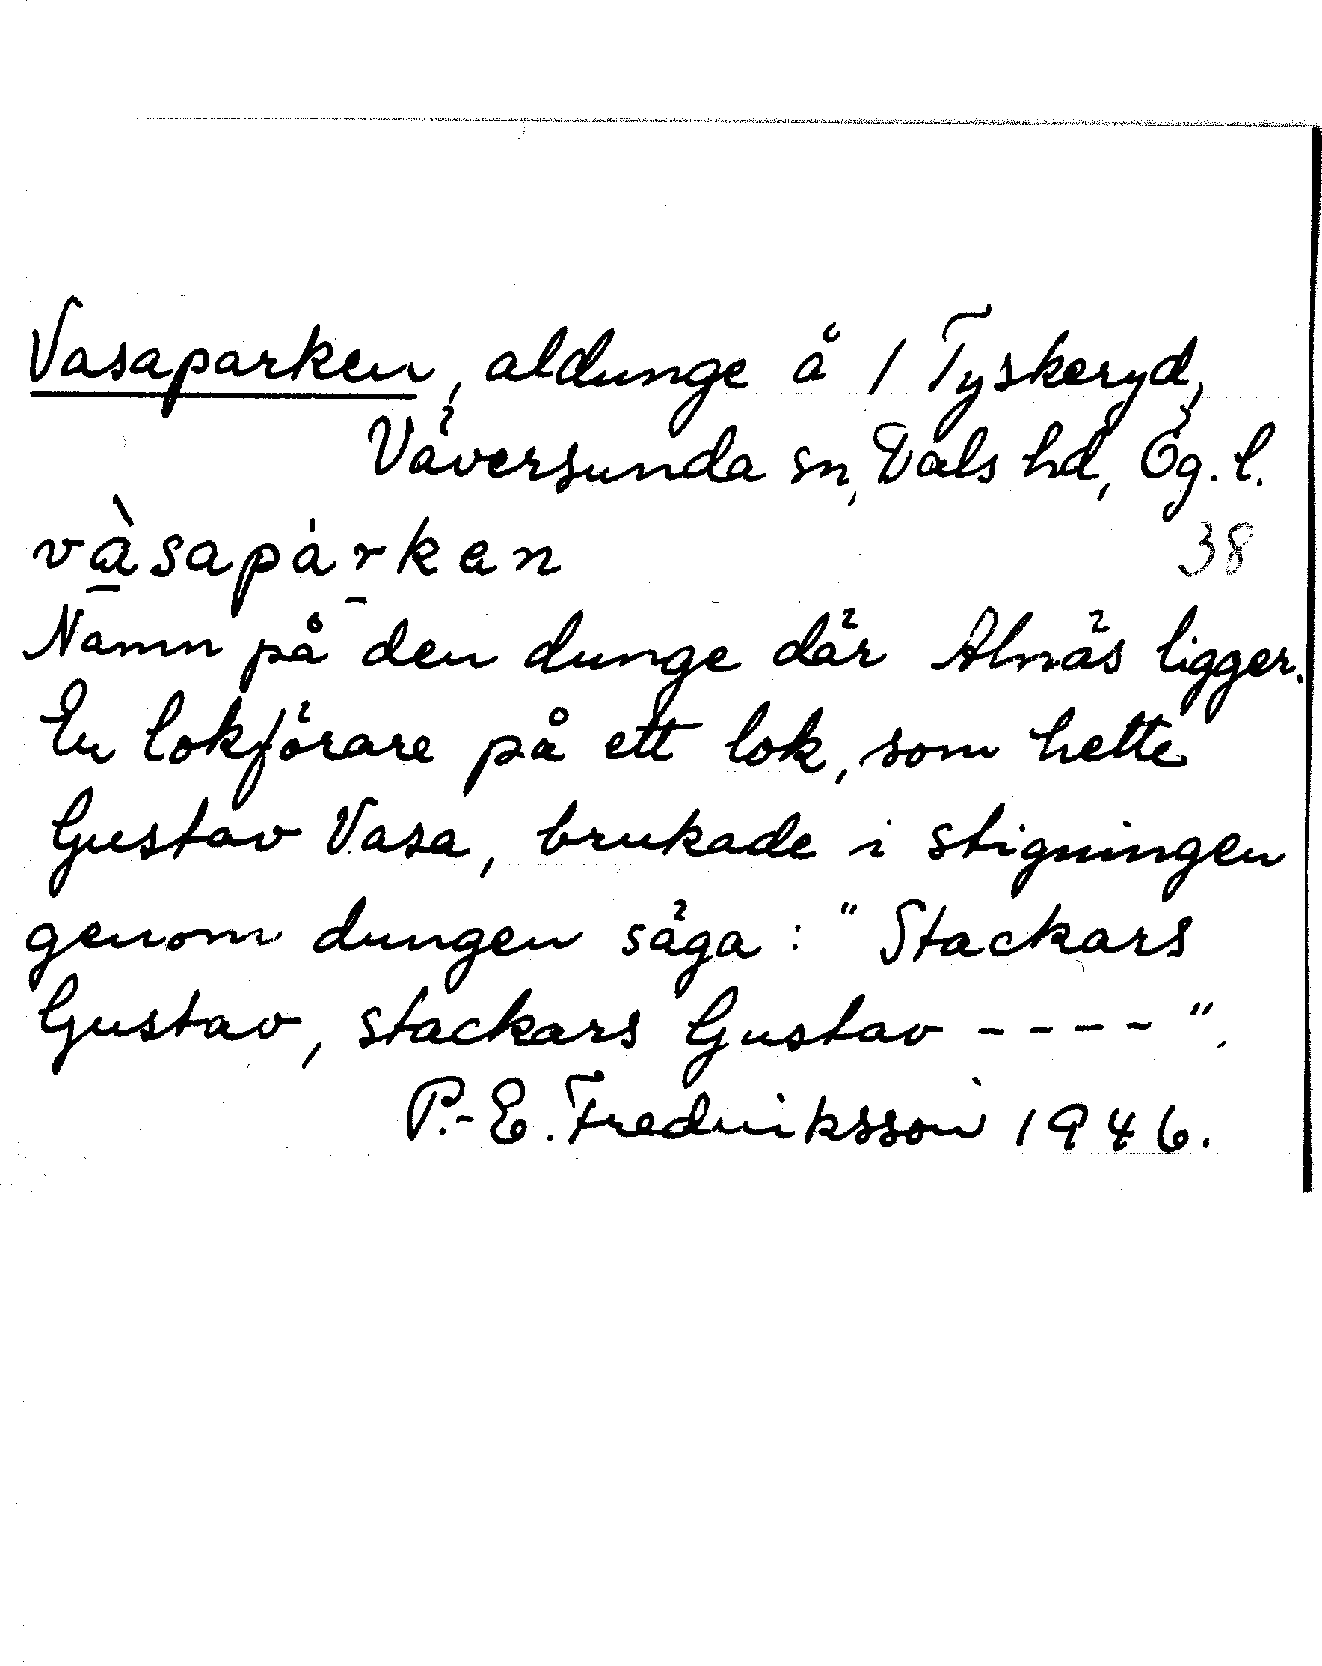 Vasaparken, aldunge å 1 Tyskeryd,
Väversunda sn, Dals hd, Ög. l.
vàsapárken 38
Namn på den dunge där Alnäs ligger.
En lokförare på ett lok, som hette
Gustav Vasa, brukade i stigningen
genom dungen säga: "Stackars
Gustav, stackars Gustav - - - - ".
P.-E. Fredriksson 1946.